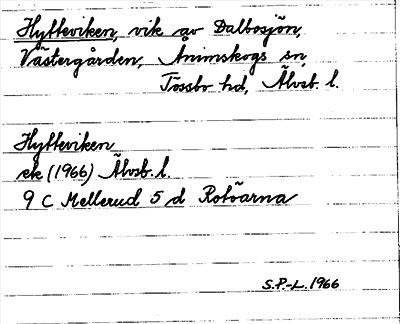 Hytteviken, vik av Dalbosjön,
Västergården, Ånimskogs sn,
Tössbo hd, Älvsb. l.
Hytteviken
ek (1966) Älvsb. l.
9 C Mellerud 5 d Rotöarna
S.P.-L. 1966